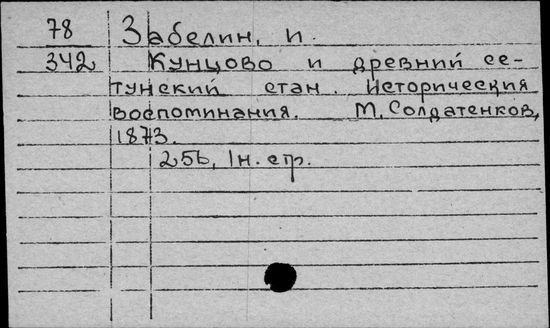 78 Забелин, И.
342 Кунцово и древний се-
тунский стан. Исторические
воспоминания. М, Солдатенков,
1873.
256, 1н. стр.